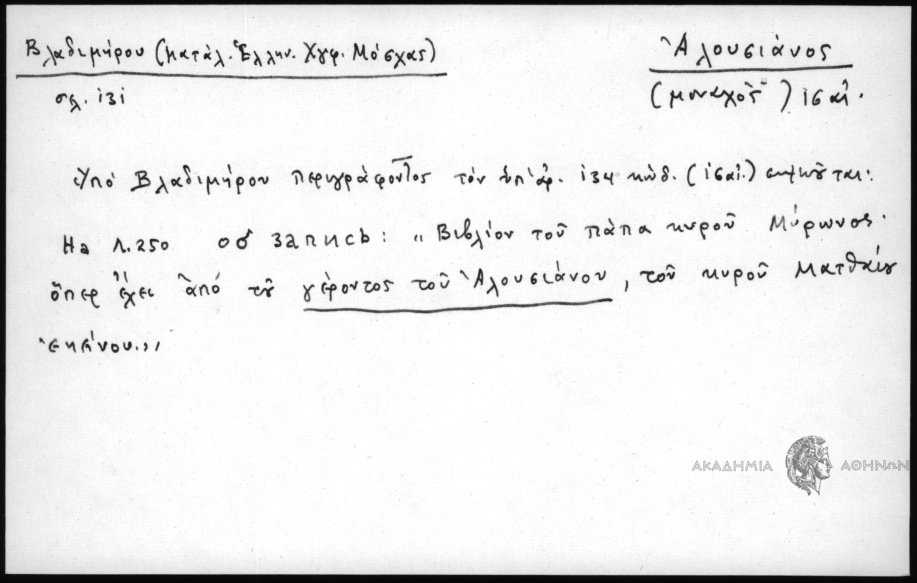 Βλαδιμήρου (Κατάλ. Ἑλλην. Χγφ. Μόσχας)
σελ. 131
Ἀλουσιάνος
(μοναχὸς) 15 αἰ.
Ὑπό Βλαδιμήρου περιγράφοντος τὸν ὑπ' ἀρ. 134 κώδ. (15 αἰ.) σημειοῦται:
На л. 250 об запись: „Βιβλίον τοῦ πάπα κυροῦ Μύρωνος·
ὅπερ ἔχει ἀπό τοῦ γέροντος τοῦ Ἀλουσιάνου, τοῦ κυροῦ Ματθαίου
ἐκείνου."
ΑΚΑΔΗΜΙΑ ΑΘΗΝΩΝ